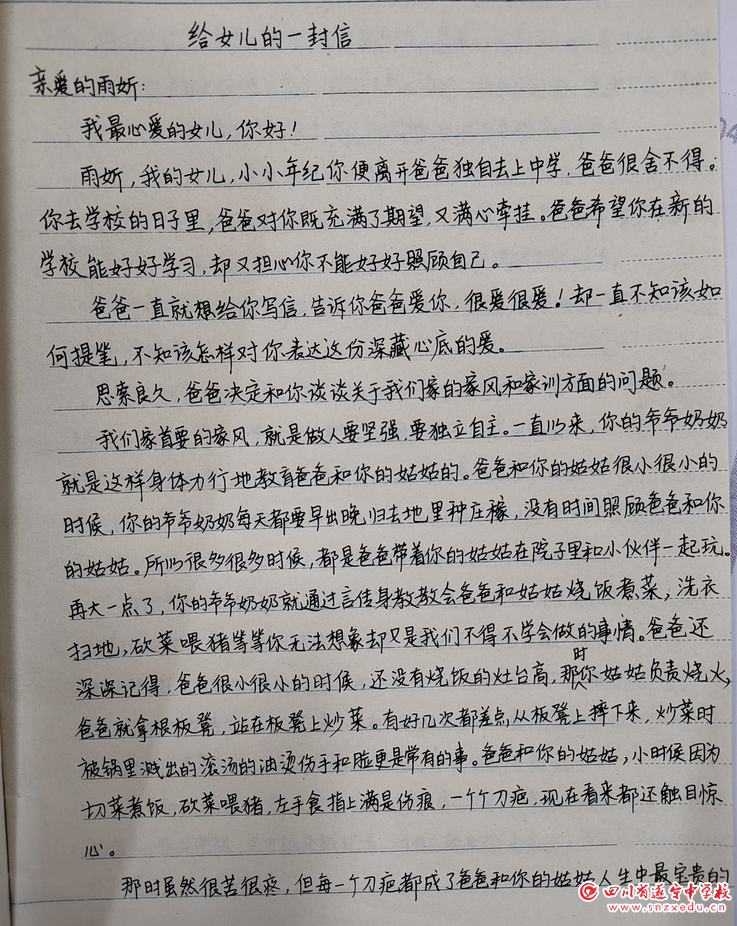 给女儿的一封信
亲爱的雨妡:
我最心爱的女儿,你好!
雨妡,我的女儿,小小年纪你便离开爸爸独自去上中学,爸爸很舍不得。
你去学校的日子里,爸爸对你既充满了期望,又满心牵挂。爸爸希望你在新的
学校能好好学习,却又担心你不能好好照顾自己。
爸爸一直就想给你写信,告诉你爸爸爱你,很爱很爱!却一直不知该如
何提笔,不知该怎样对你表达这份深藏心底的爱。
思索良久,爸爸决定和你谈谈关于我们家的家风和家训方面的问题。
我们家首要的家风,就是做人要坚强,要独立自主。一直以来,你的爷爷奶奶
就是这样身体力行地教育爸爸和你的姑姑的。爸爸和你的姑姑很小很小的
时候,你的爷爷奶奶每天都要早出晚归去地里种庄稼,没有时间照顾爸爸和你
的姑姑。所以很多很多时候,都是爸爸带着你的姑姑在院子里和小伙伴一起玩。
再大一点了,你的爷爷奶奶就通过言传身教教会爸爸和姑姑烧饭煮菜,洗衣
扫地,砍菜喂猪等等你无法想象却又是我们不得不学会做的事情。爸爸还
深深记得,爸爸很小很小的时候,还没有烧饭的灶台高,那时你姑姑负责烧火,
爸爸就拿根板凳,站在板凳上炒菜。有好几次都差点从板凳上摔下来,炒菜时
被锅里溅出的滚汤的油烫伤手和脸更是常有的事。爸爸和你的姑姑,小时候因为
切菜煮饭,砍菜喂猪,左手食指上满是伤痕,一个个刀疤,现在看来都还触目惊
心。
那时虽然很苦很疼,但每一个刀疤都成了爸爸和你的姑姑人生中最宝贵的
四川省遂宁中学校
www.snzxedu.cn